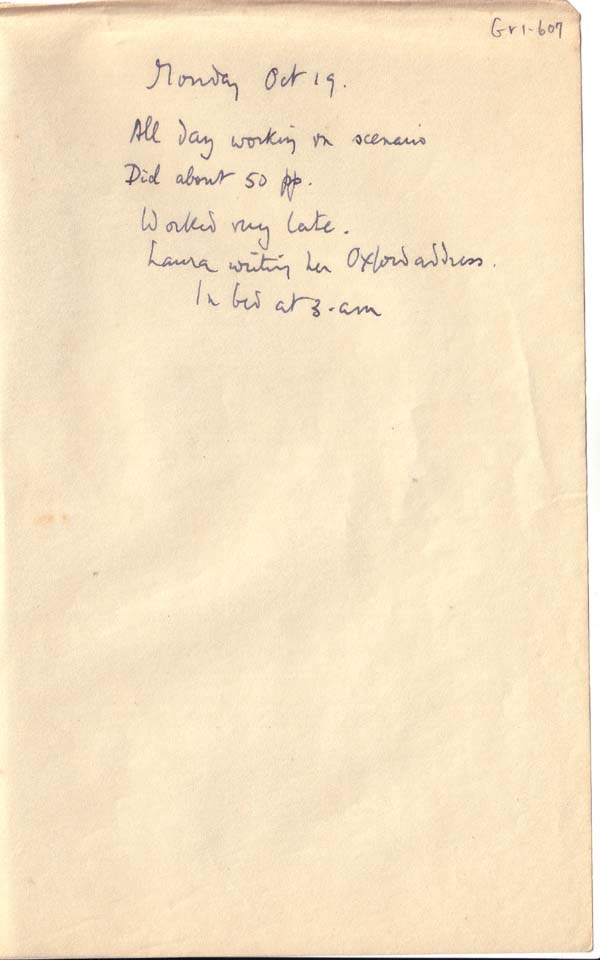 Gr1-607
Monday Oct 19.
All day working on scenario
Did about 50 pp.
Worked very late.
Laura writing her Oxford address.
In bed at 3. am